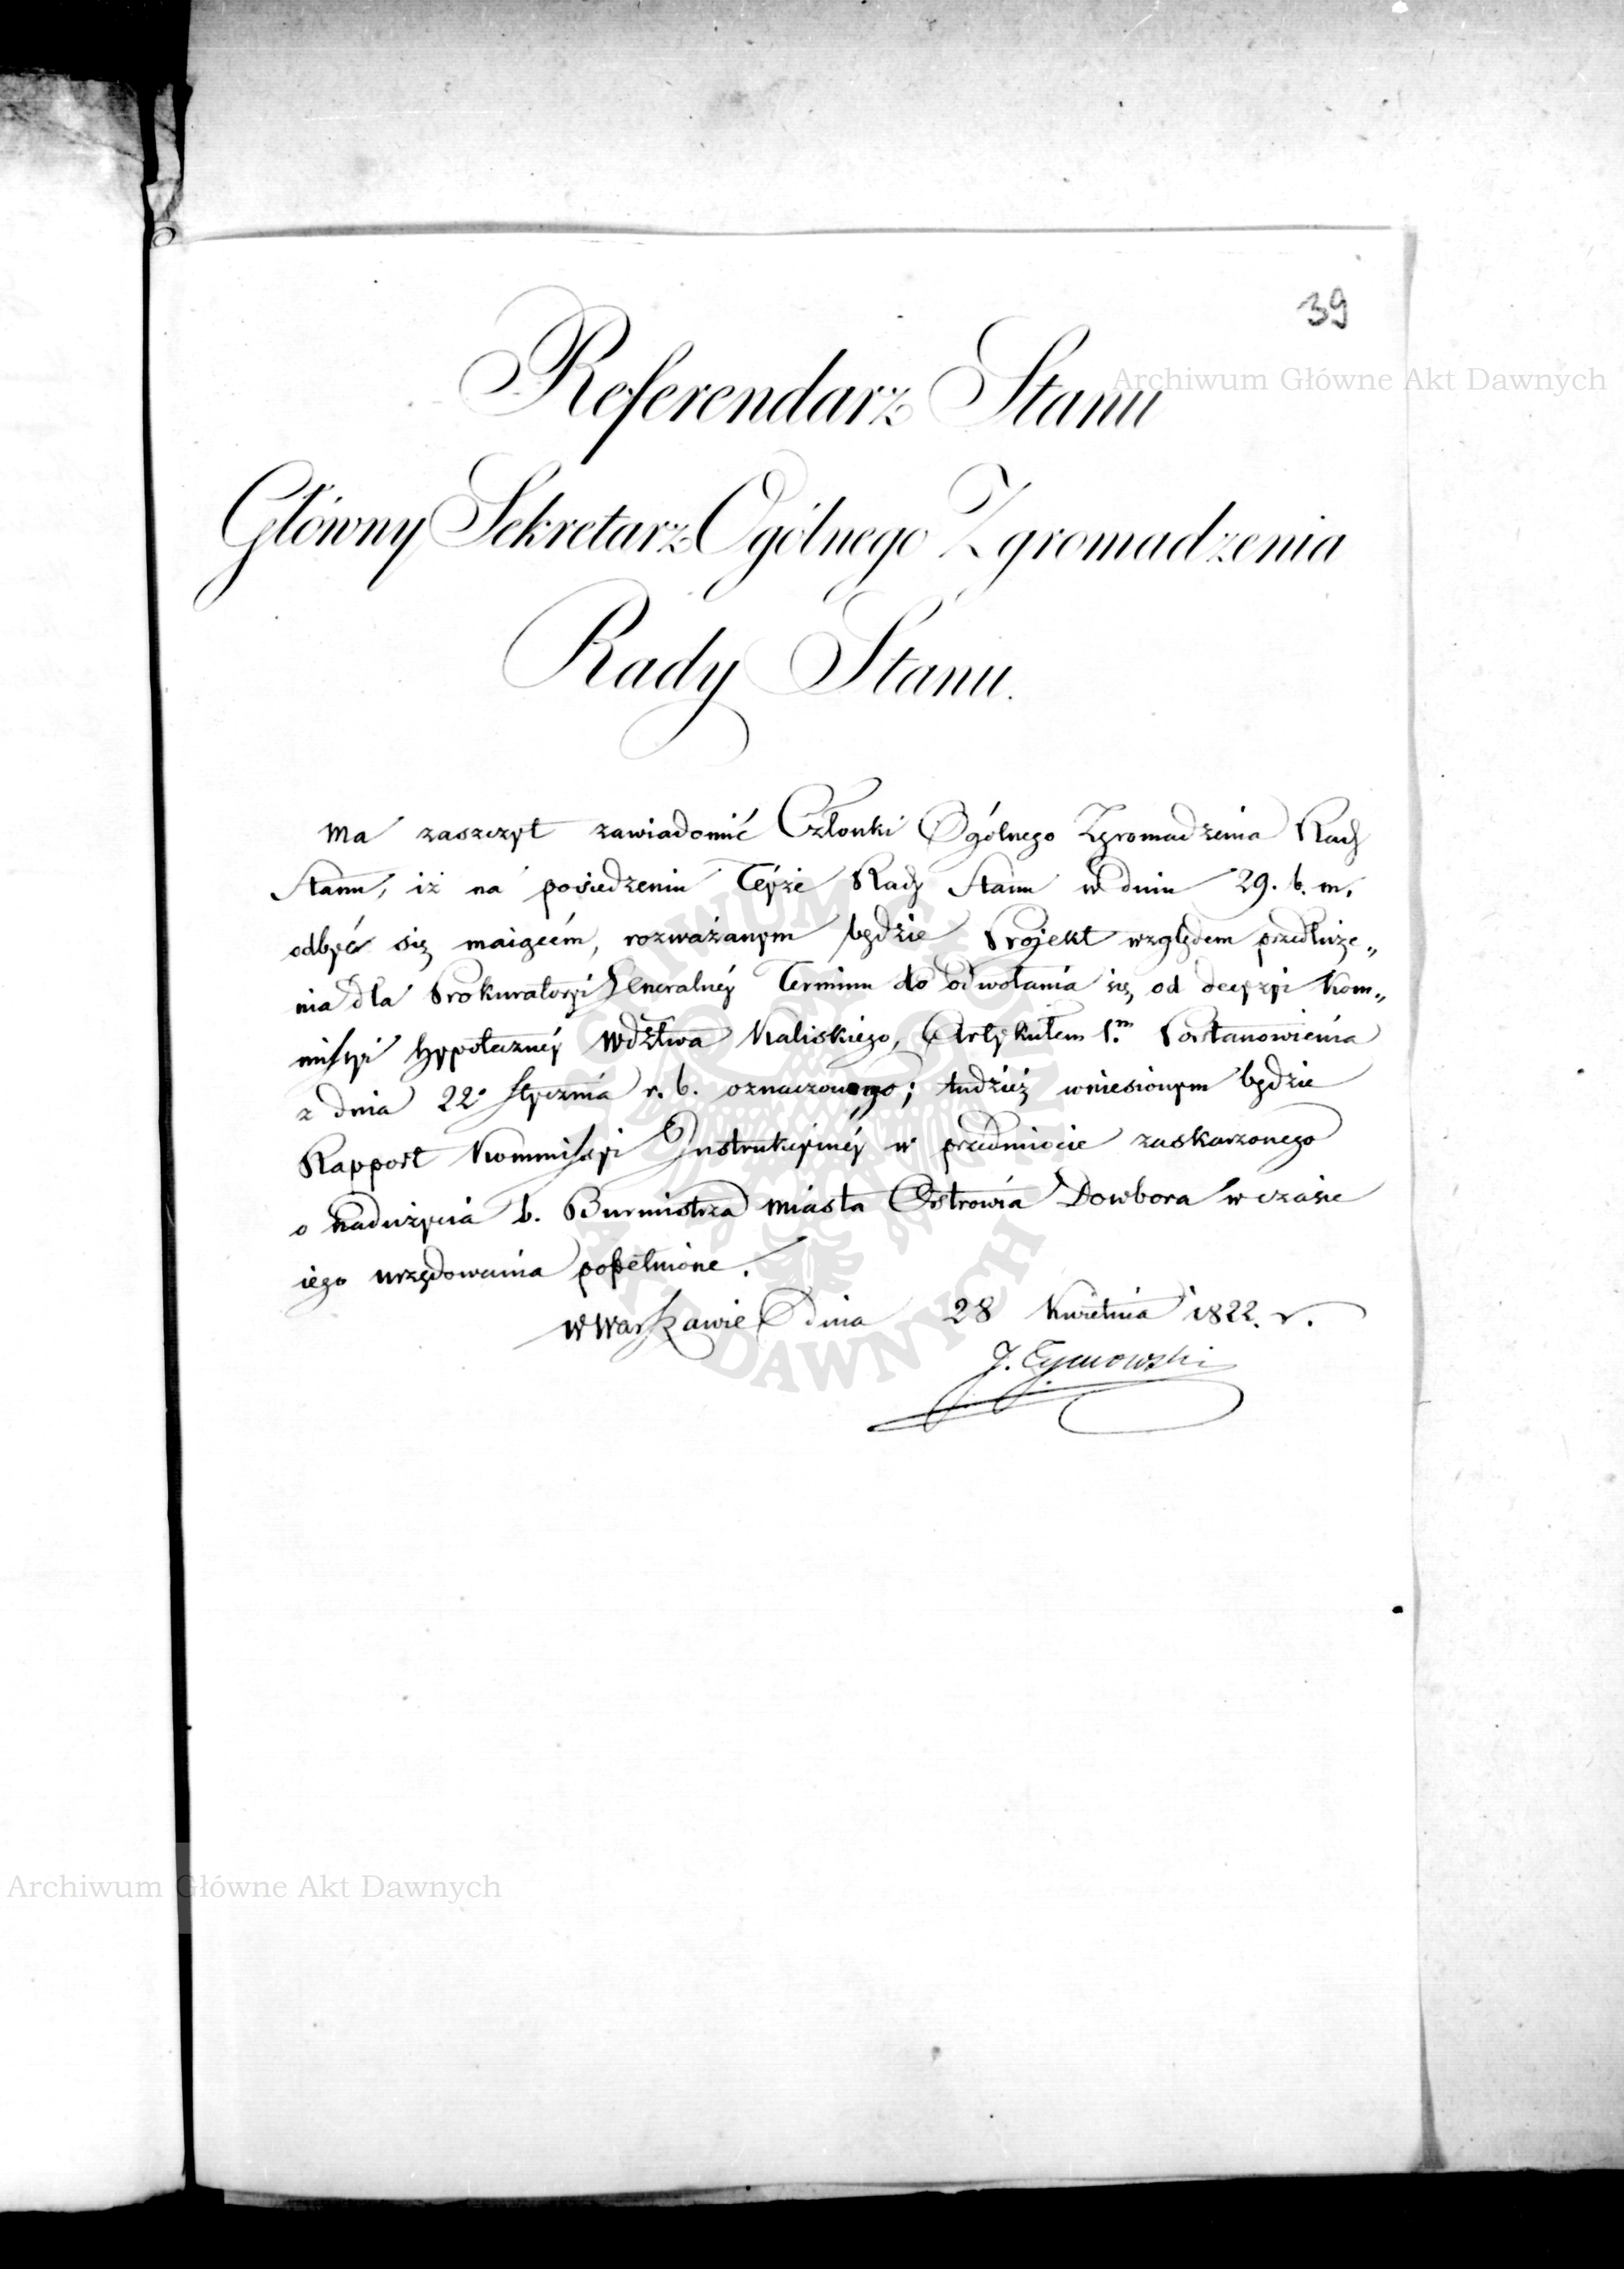 39
Archiwum Główne Akt Dawnych
Referendarz Stanu
Główny Sekretarz Ogólnego Zgromadzenia
Rady Stanu.
Ma zaszczyt zawiadomić Członki Ogólnego Zgromadzenia Rady
Stanu, iż na posiedzeniu Teyże Rady Stanu w dniu 29. b. m.
odbyć się maiącém, rozważanym będzie Projekt względem przedłuże„
nia dla Prokuratoryi Generalnéy Terminu do odwołania się, od decyzyi Kom„
missyi Hypoteczney Wdztwa Kaliskiego, Artykułem 1.m Postanowienia
z dnia 22º Stycznia r. b. oznaczonego; tudzież wniesionym będzie
Rapport Kommissyi Instrukcyinéy w przedmiocie zaskarzonego
o nadużycia b. Burmistrza miasta Ostrowia Dowbora w czasie
iego urzędowania popełnione.
w Warszawie Dnia 28 Kwietnia 1822. r.
J. Tymowski
ARCHIWUM GŁÓWNE AKT DAWNYCH
Archiwum Główne Akt Dawnych